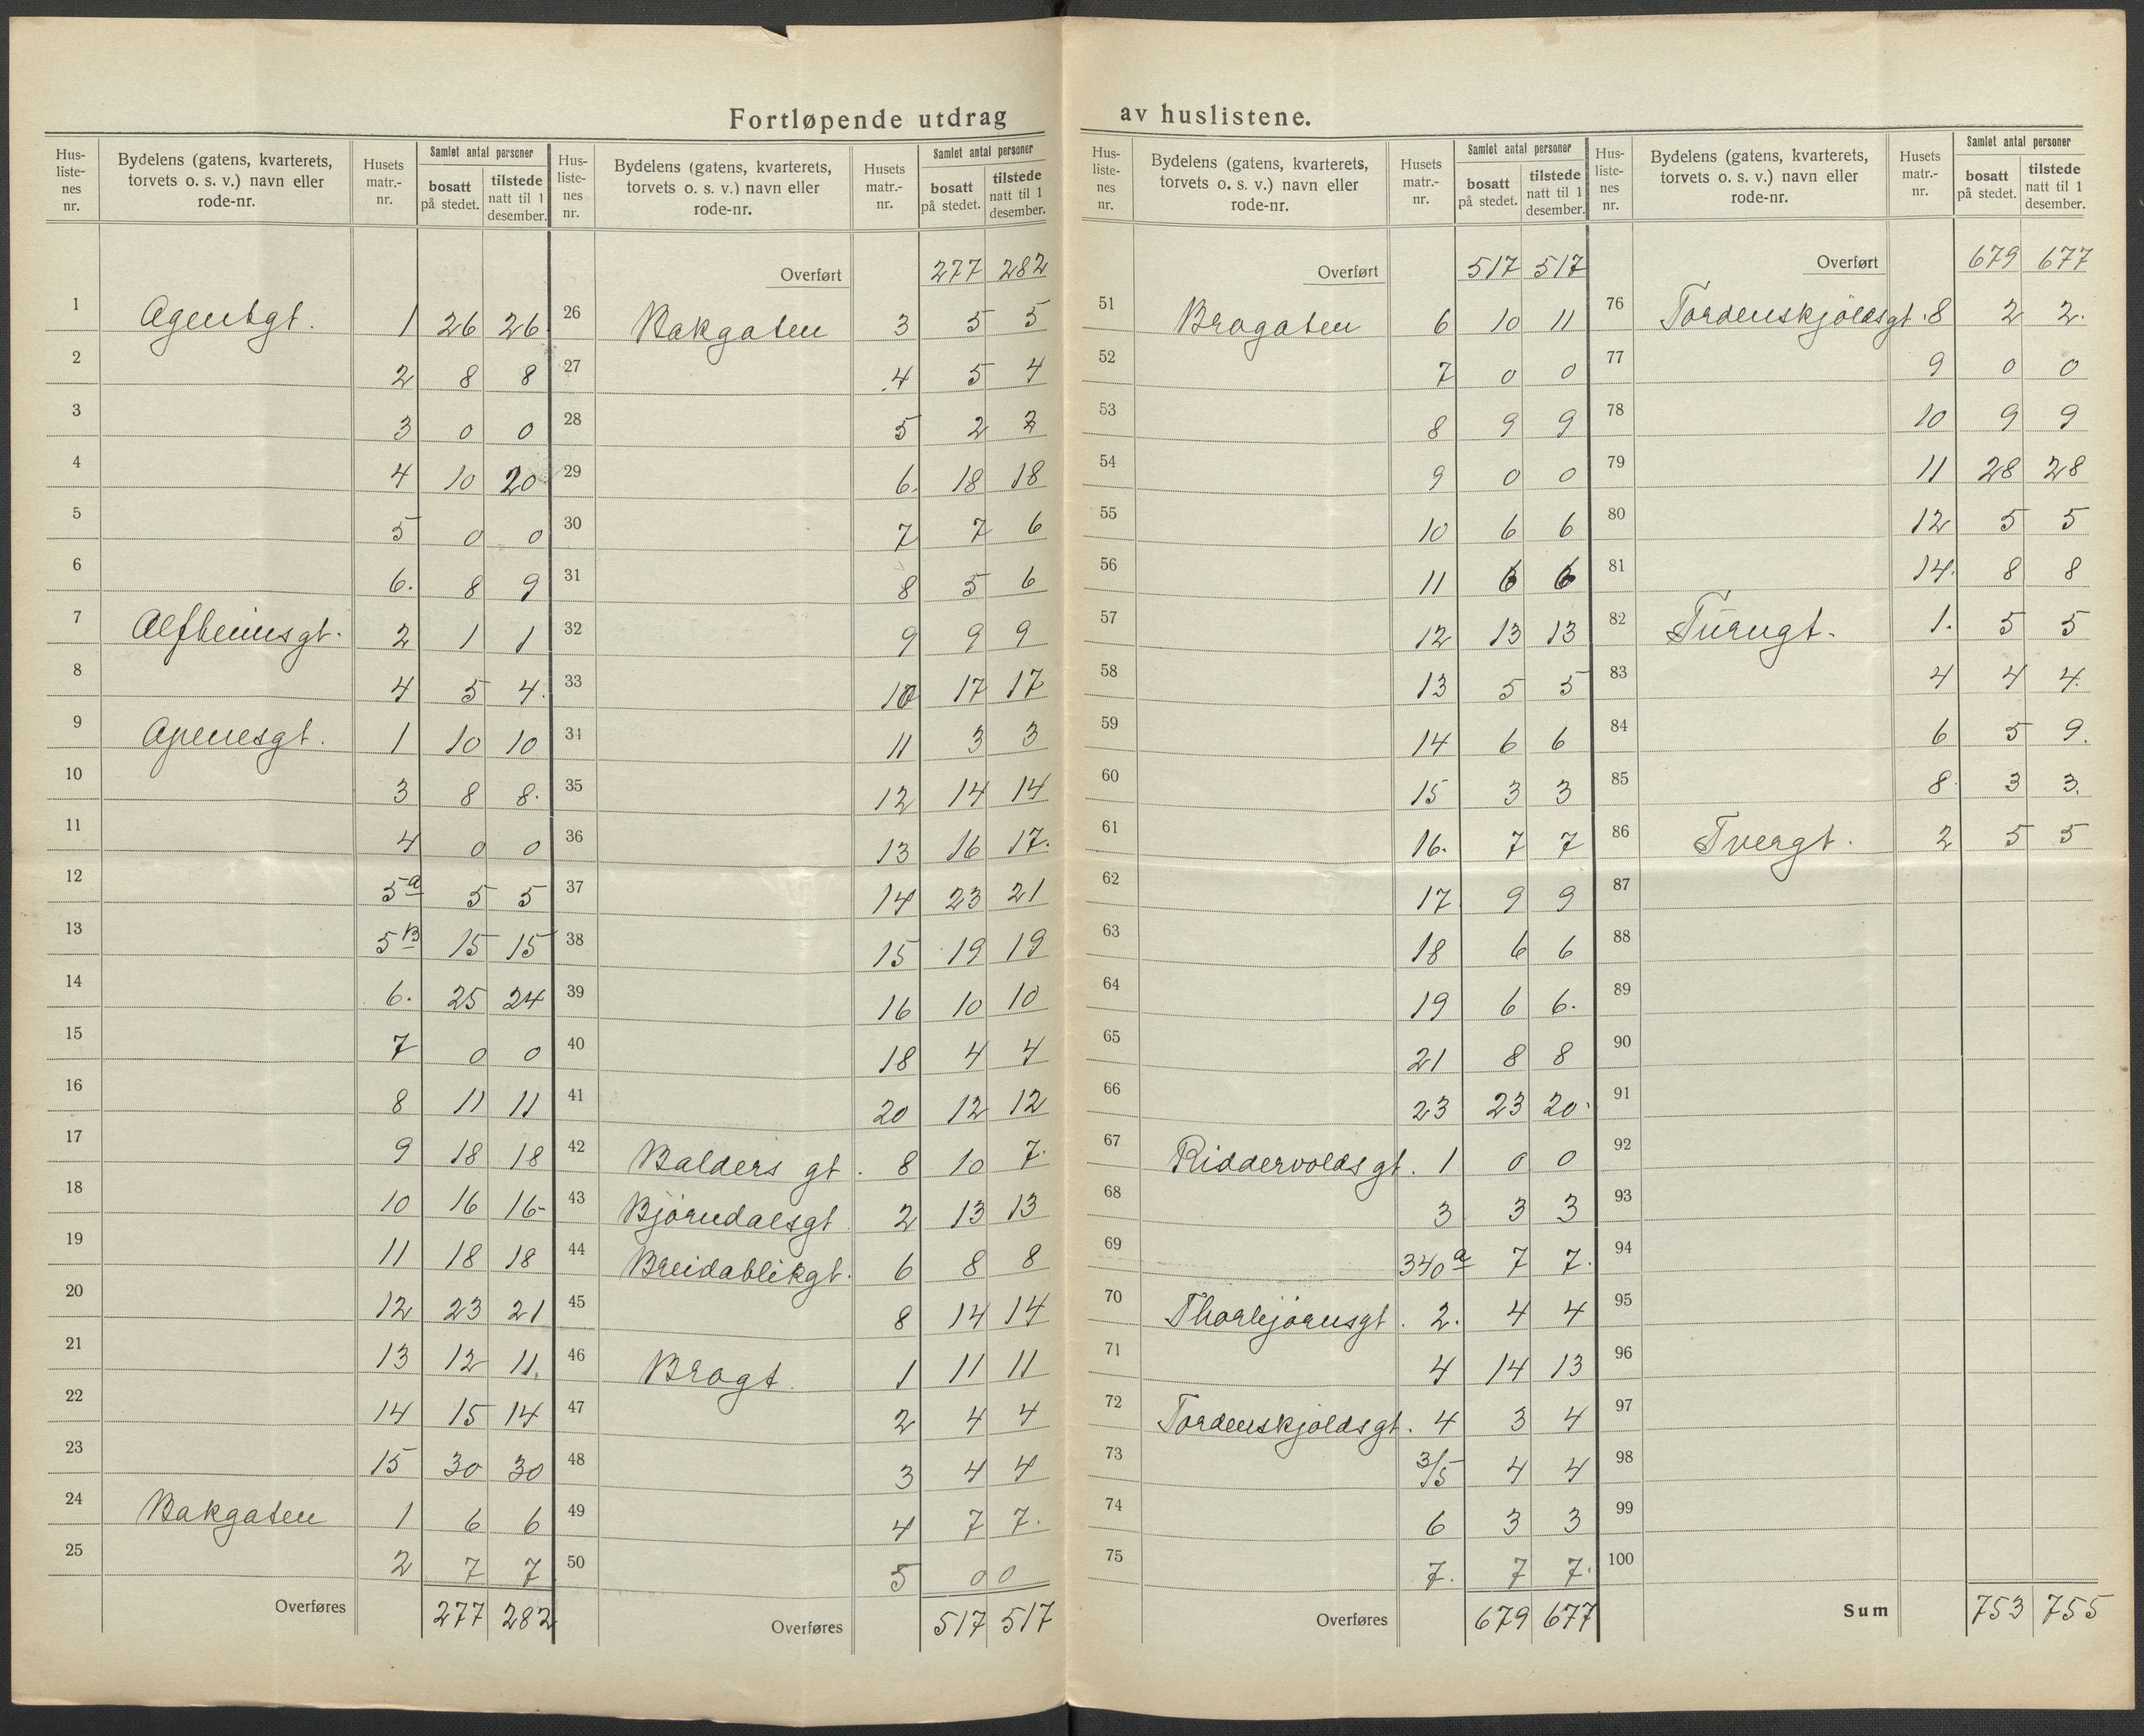 Fortløpende utdrag av huslistene.
Hus-listenes nr. | Bydelens (gatens, kvarterets, torvets o. s. v.) navn eller rode-nr. | Husets matr.-nr. | Samlet antal personer bosatt på stedet. | tilstede natt til 1 desember.
1 Agentgt. 1 26 26
2 2 8 8
3 3 0 0
4 4 10 20
5 5 0 0
6 6. 8 9
7 Alfheimsgt. 2 1 1
8 4 5 4.
9 Apenesgt. 1 10 10
10 3 8 8.
11 4 0 0
12 5a 5 5
13 5B 15 15
14 6. 25 24
15 7 0 0
16 8 11 11
17 9 18 18
18 10 16 16-
19 11 18 18
20 12 23 21
21 13 12 11.
22 14 15 14
23 15 30 30
24 Bakgaten 1 6 6
25 2 7 7
Overføres 277 282
Hus-listenes nr. | Bydelens (gatens, kvarterets, torvets o. s. v.) navn eller rode-nr. | Husets matr.-nr. | Samlet antal personer bosatt på stedet. | tilstede natt til 1 desember.
Overført 277 282
26 Bakgaten 3 5 5
27 4 5 4
28 5 2 2
29 6. 18 18
30 7 7 6
31 8 5 6
32 9 9 9
33 10 17 17
34 11 3 3
35 12 14 14
36 13 16 17.
37 14 23 21
38 15 19 19
39 16 10 10
40 18 4 4
41 20 12 12
42 Balders gt. 8 10 7.
43 Bjørndalsgt 2 13 13
44 Breidablikgt. 6 8 8
45 8 14 14
46 Bragt. 1 11 11
47 2 4 4
48 3 4 4
49 4 7 7.
50 5 0 0
Overføres 517 517
Hus-listenes nr. | Bydelens (gatens, kvarterets, torvets o. s. v.) navn eller rode-nr. | Husets matr.-nr. | Samlet antal personer bosatt på stedet. | tilstede natt til 1 desember.
Overført 517 517
51 Bragaten 6 10 11
52 7 0 0
53 8 9 9
54 9 0 0
55 10 6 6
56 11 6 6
57 12 13 13
58 13 5 5
59 14 6 6
60 15 3 3
61 16. 7 7
62 17 9 9
63 18 6 6
64 19 6 6.
65 21 8 8
66 23 23 20.
67 Riddervoldsgt. 1 0 0
68 3 3 3
69 340a 7 7.
70 Thorbjørnsgt. 2. 4 4
71 4 14 13
72 Tordenskjoldsgt. 4 3 4
73 3/5 4 4
74 6 3 3
75 7. 7 7.
Overføres 679 677
Hus-listenes nr. | Bydelens (gatens, kvarterets, torvets o. s. v.) navn eller rode-nr. | Husets matr.-nr. | Samlet antal personer bosatt på stedet. | tilstede natt til 1 desember.
Overført 679 677
76 Tordenskjoldsgt. 8 2 2.
77 9 0 0
78 10 9 9
79 11 28 28
80 12 5 5
81 14. 8 8
82 Turngt. 1. 5 5
83 4 4 4.
84 6 5 9.
85 8. 3 3.
86 Tvergt. 2 5 5
87
88
89
90
91
92
93
94
95
96
97
98
99
100
Sum 753 755